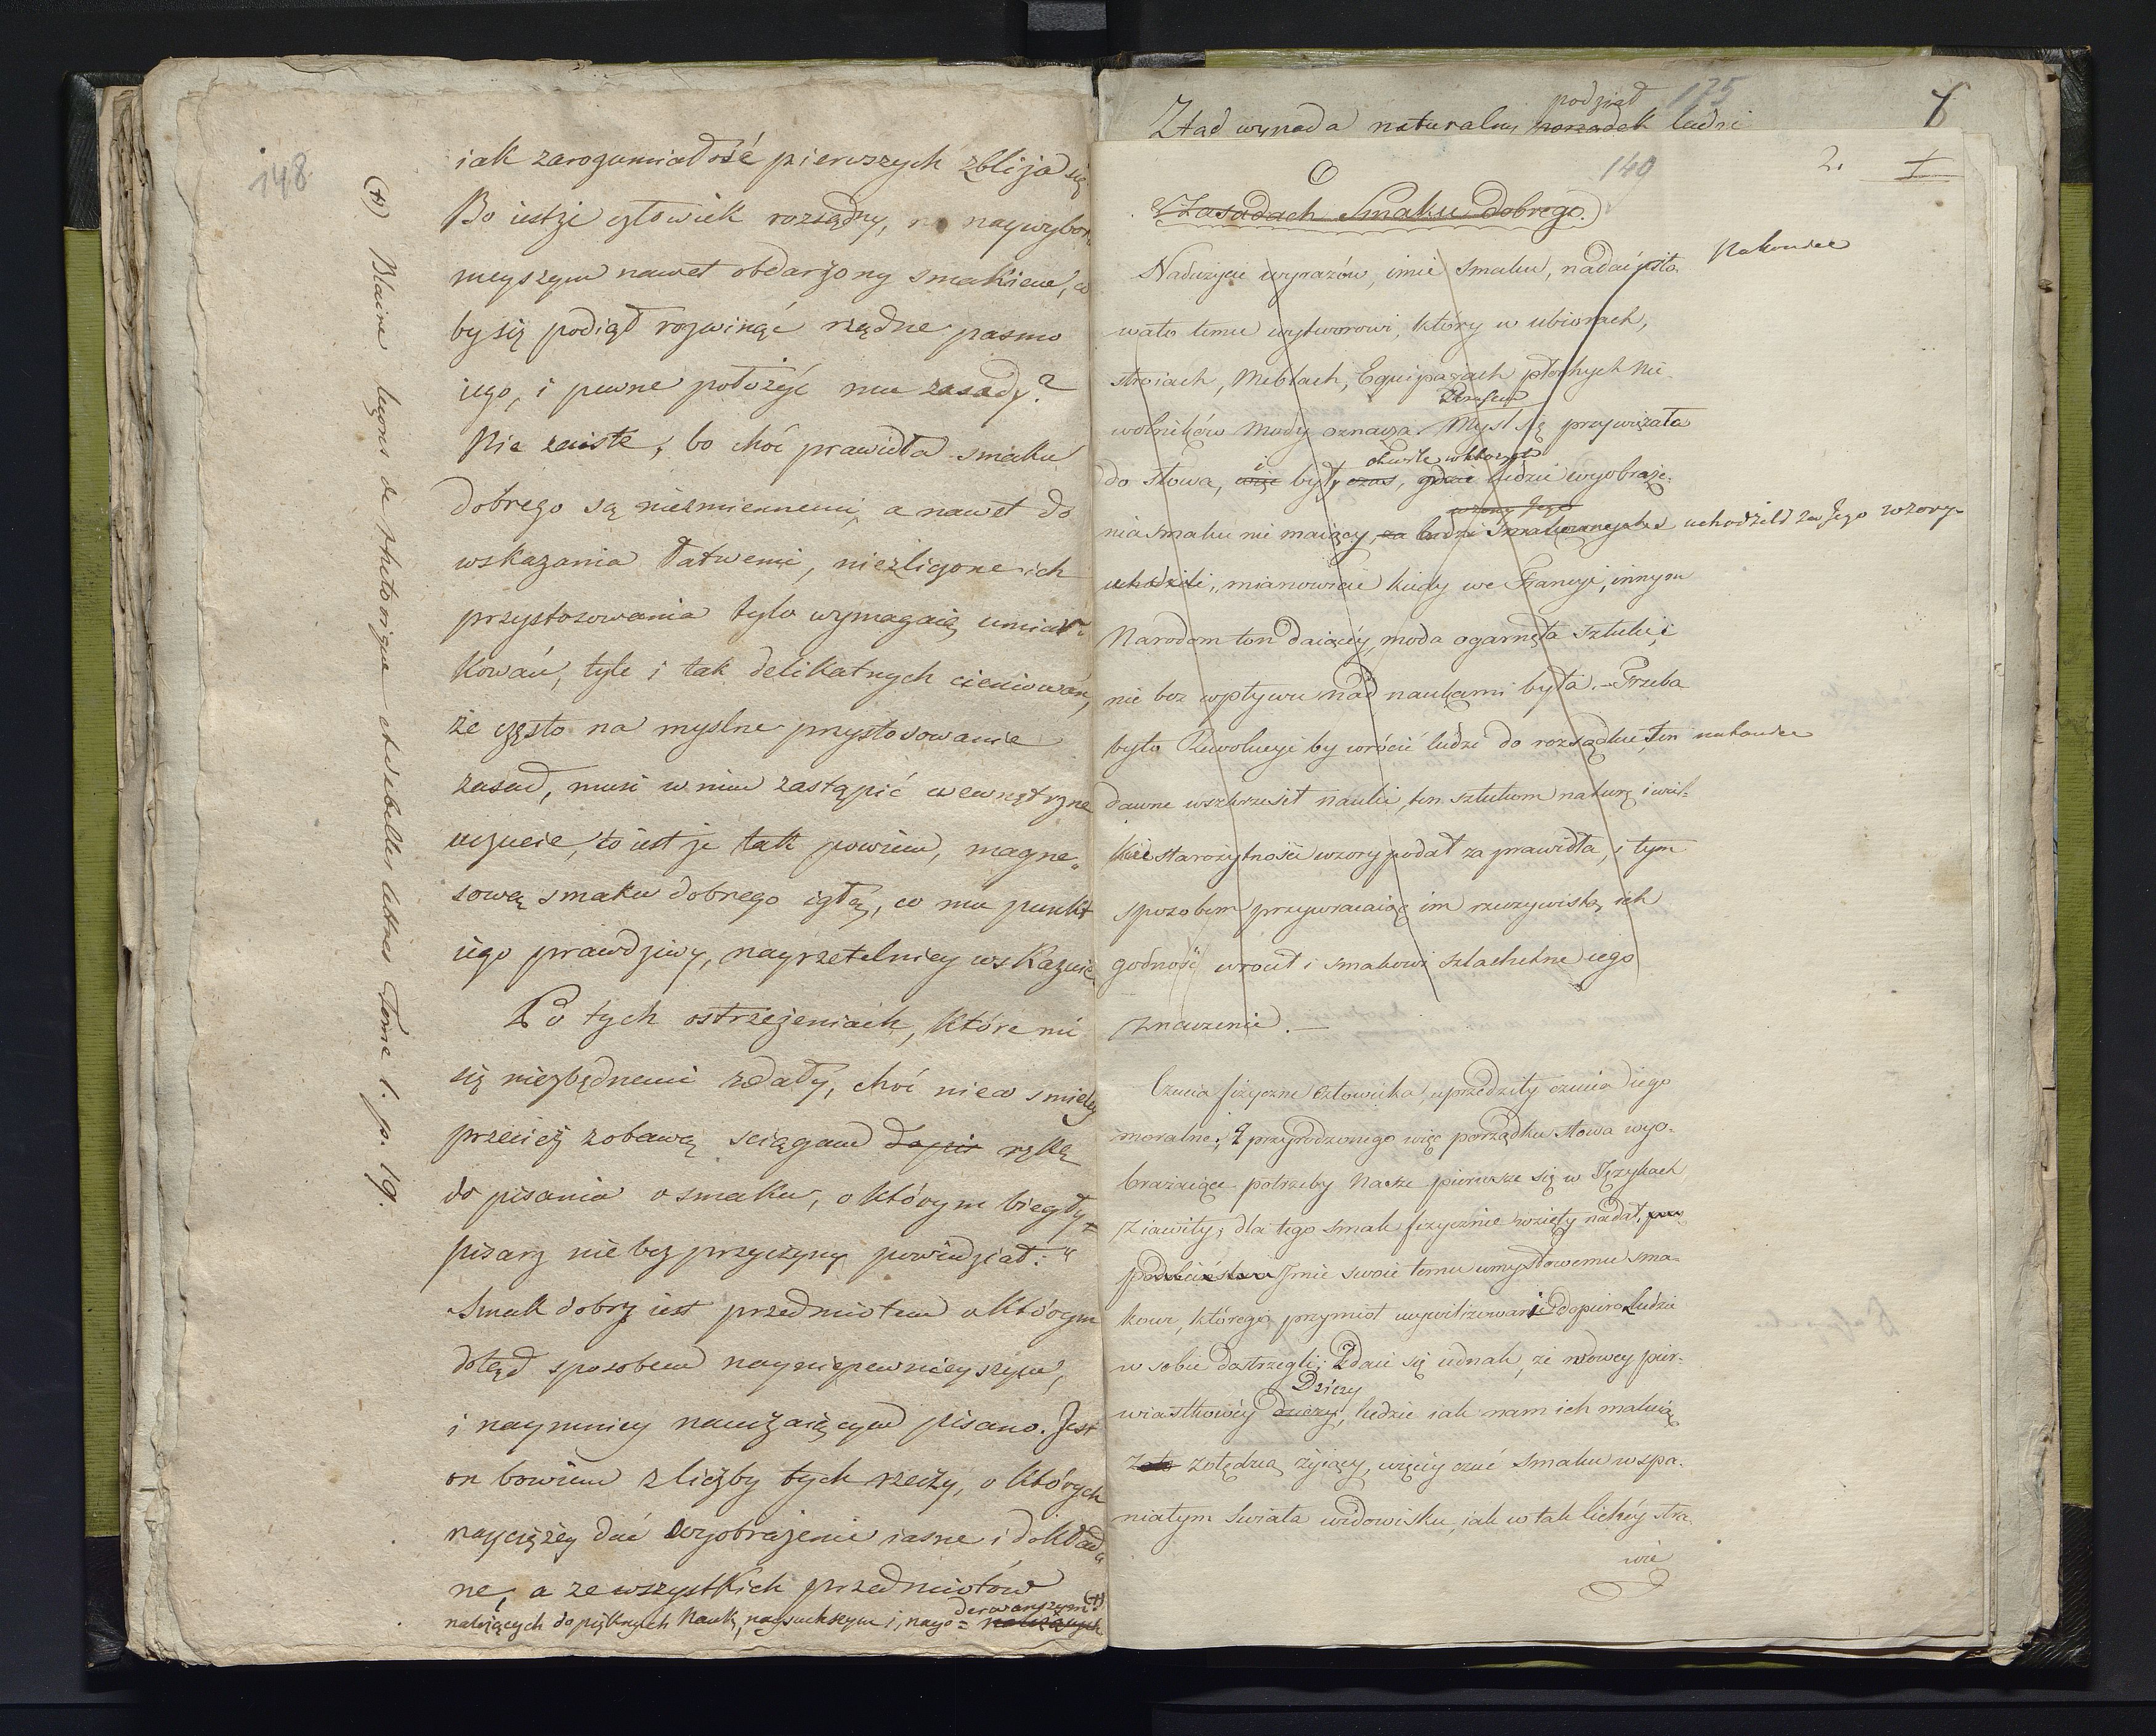 148
iak zarozumiałość pierwszych zbliża się
Bo iestże człowiek rozsądny, naywybor
nieyszym nawet obdarzony smakiem, co
by się podiął rozwinąć rządne pasmo
iego, i pewne położyć mu zasady?
Nie zaiste, bo choć prawidła smaku
dobrego są niezmiennemi, a nawet do
wskazania łatwemi, niezliczone ich
przystosowania tylo wymagaią umiar-
kowań, tyle i tak delikatnych cieniowań,
że często na myslne przystosowanie
zasad, musi w nim zastąpić wewnętrzne
uczucie, to iest że tak powiem, magne-
sową smaku dobrego igłą, co mu punkt
iego prawdziwy, nayrzetelniey wskazuie
Po tych ostrzeżeniach, które mi
się niezbędnemi zdały, choć nieco smieley
przecież z obawą sciągam dopir rękę
do pisania o smaku, o którym biegły
pisarz nie bez przyczyny powiedział: "
Smak dobry iest przedmiotem o którym
dotąd sposobem nayniepewnieyszym,
i naymniey nauczaiącym pisano. Jest
on bowiem z liczby tych rzeczy, o których
naycięzey dać wyobrażenie iasne i dokład
ne, a ze wszystkich przedmiotów
derwanszym (+)
należących do pięknych Nauk, naysuchszym i, nayo= należących
(+) Blaire leçons de rhetorique et de belles lettres Tome 1. p. 19.
175
podział
Ztąd wypada naturalny porządek ludzi
149
2.
O
Zasadach Smaku dobrego.
Nadużycie wyrazów, imie smaku, nadać zdo- Nakoniec
wało temu wytworowi, który w ubiorach,
stroiach, Meblach, Equipażach płochych Nie-
wolników Mody oznacza. Mysl się przywiązała
do słowa, więc były czas, gdzie ludzie wyobraże-
chwile w których
nia smaku nie maiący, za ludzi uchodzili za Jego wzory.
wzory Jego
uchodzili, mianowicie kiedy we Francyi, innym
Narodom ton daiącéy, moda ogarnęła sztuki, i
nie bez wpływu nad naukami była. Trzeba
było Rewolucyi by wrócić ludzi do rozsądku, Ten nakoniec
dawne wskrzesił nauki, ten sztukom naturę i wiel-
kie starożytności wzory podał za prawidła, i tym
sposobem przywracaiąc im rzeczywistą ich
godność wrócił i smakowi szlachetne iego
znaczenie. —
Czucia fizyczne człowieka, uprzedziły czucia iego
moralne; Z przyrodzonego więc porządku słowa wyo-
brażaiące potrzeby Nasze pierwsze się w Językach
ziawiły; dla tego smak fizycznie wzięty nadał, prze
podobieństwo Imie swoie temu umysłowemu sma-
kowi, którego przymiot ucywilizowani dopiero ludzie
w sobie dostrzegli; Zdaie się iednak, że w owey pier-
Dziczy
wiastkowéy dziczy, ludzie iak nam ich maluią
żołędzią żyiący, więcey czuć smaku w spa-
niałym swiata widowisku, iak w tak lichéy stra-
wie